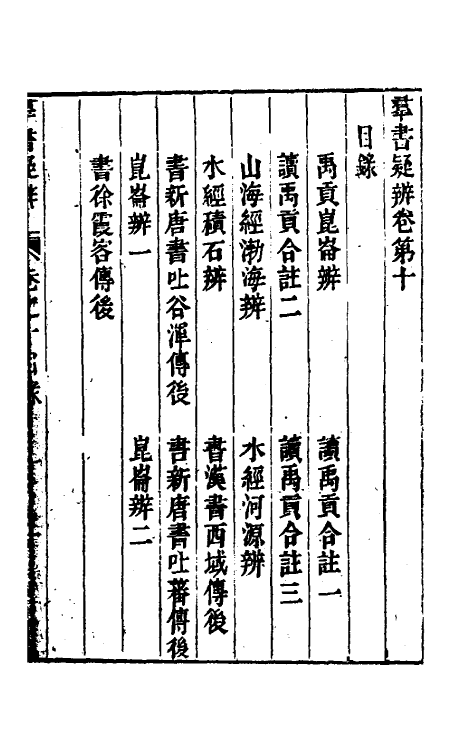 羣書疑辨卷第十
目錄
禹貢崑崙辨 讀禹貢合註一
讀禹貢合註二 讀禹貢合註三
山海經渤海辨 水經河源辨
水經積石辨 書漢書西域傳後
書新唐書吐谷渾傳後 書新唐書吐蕃傳後
崑崙辨一 崑崙辨二
書徐霞客傳後